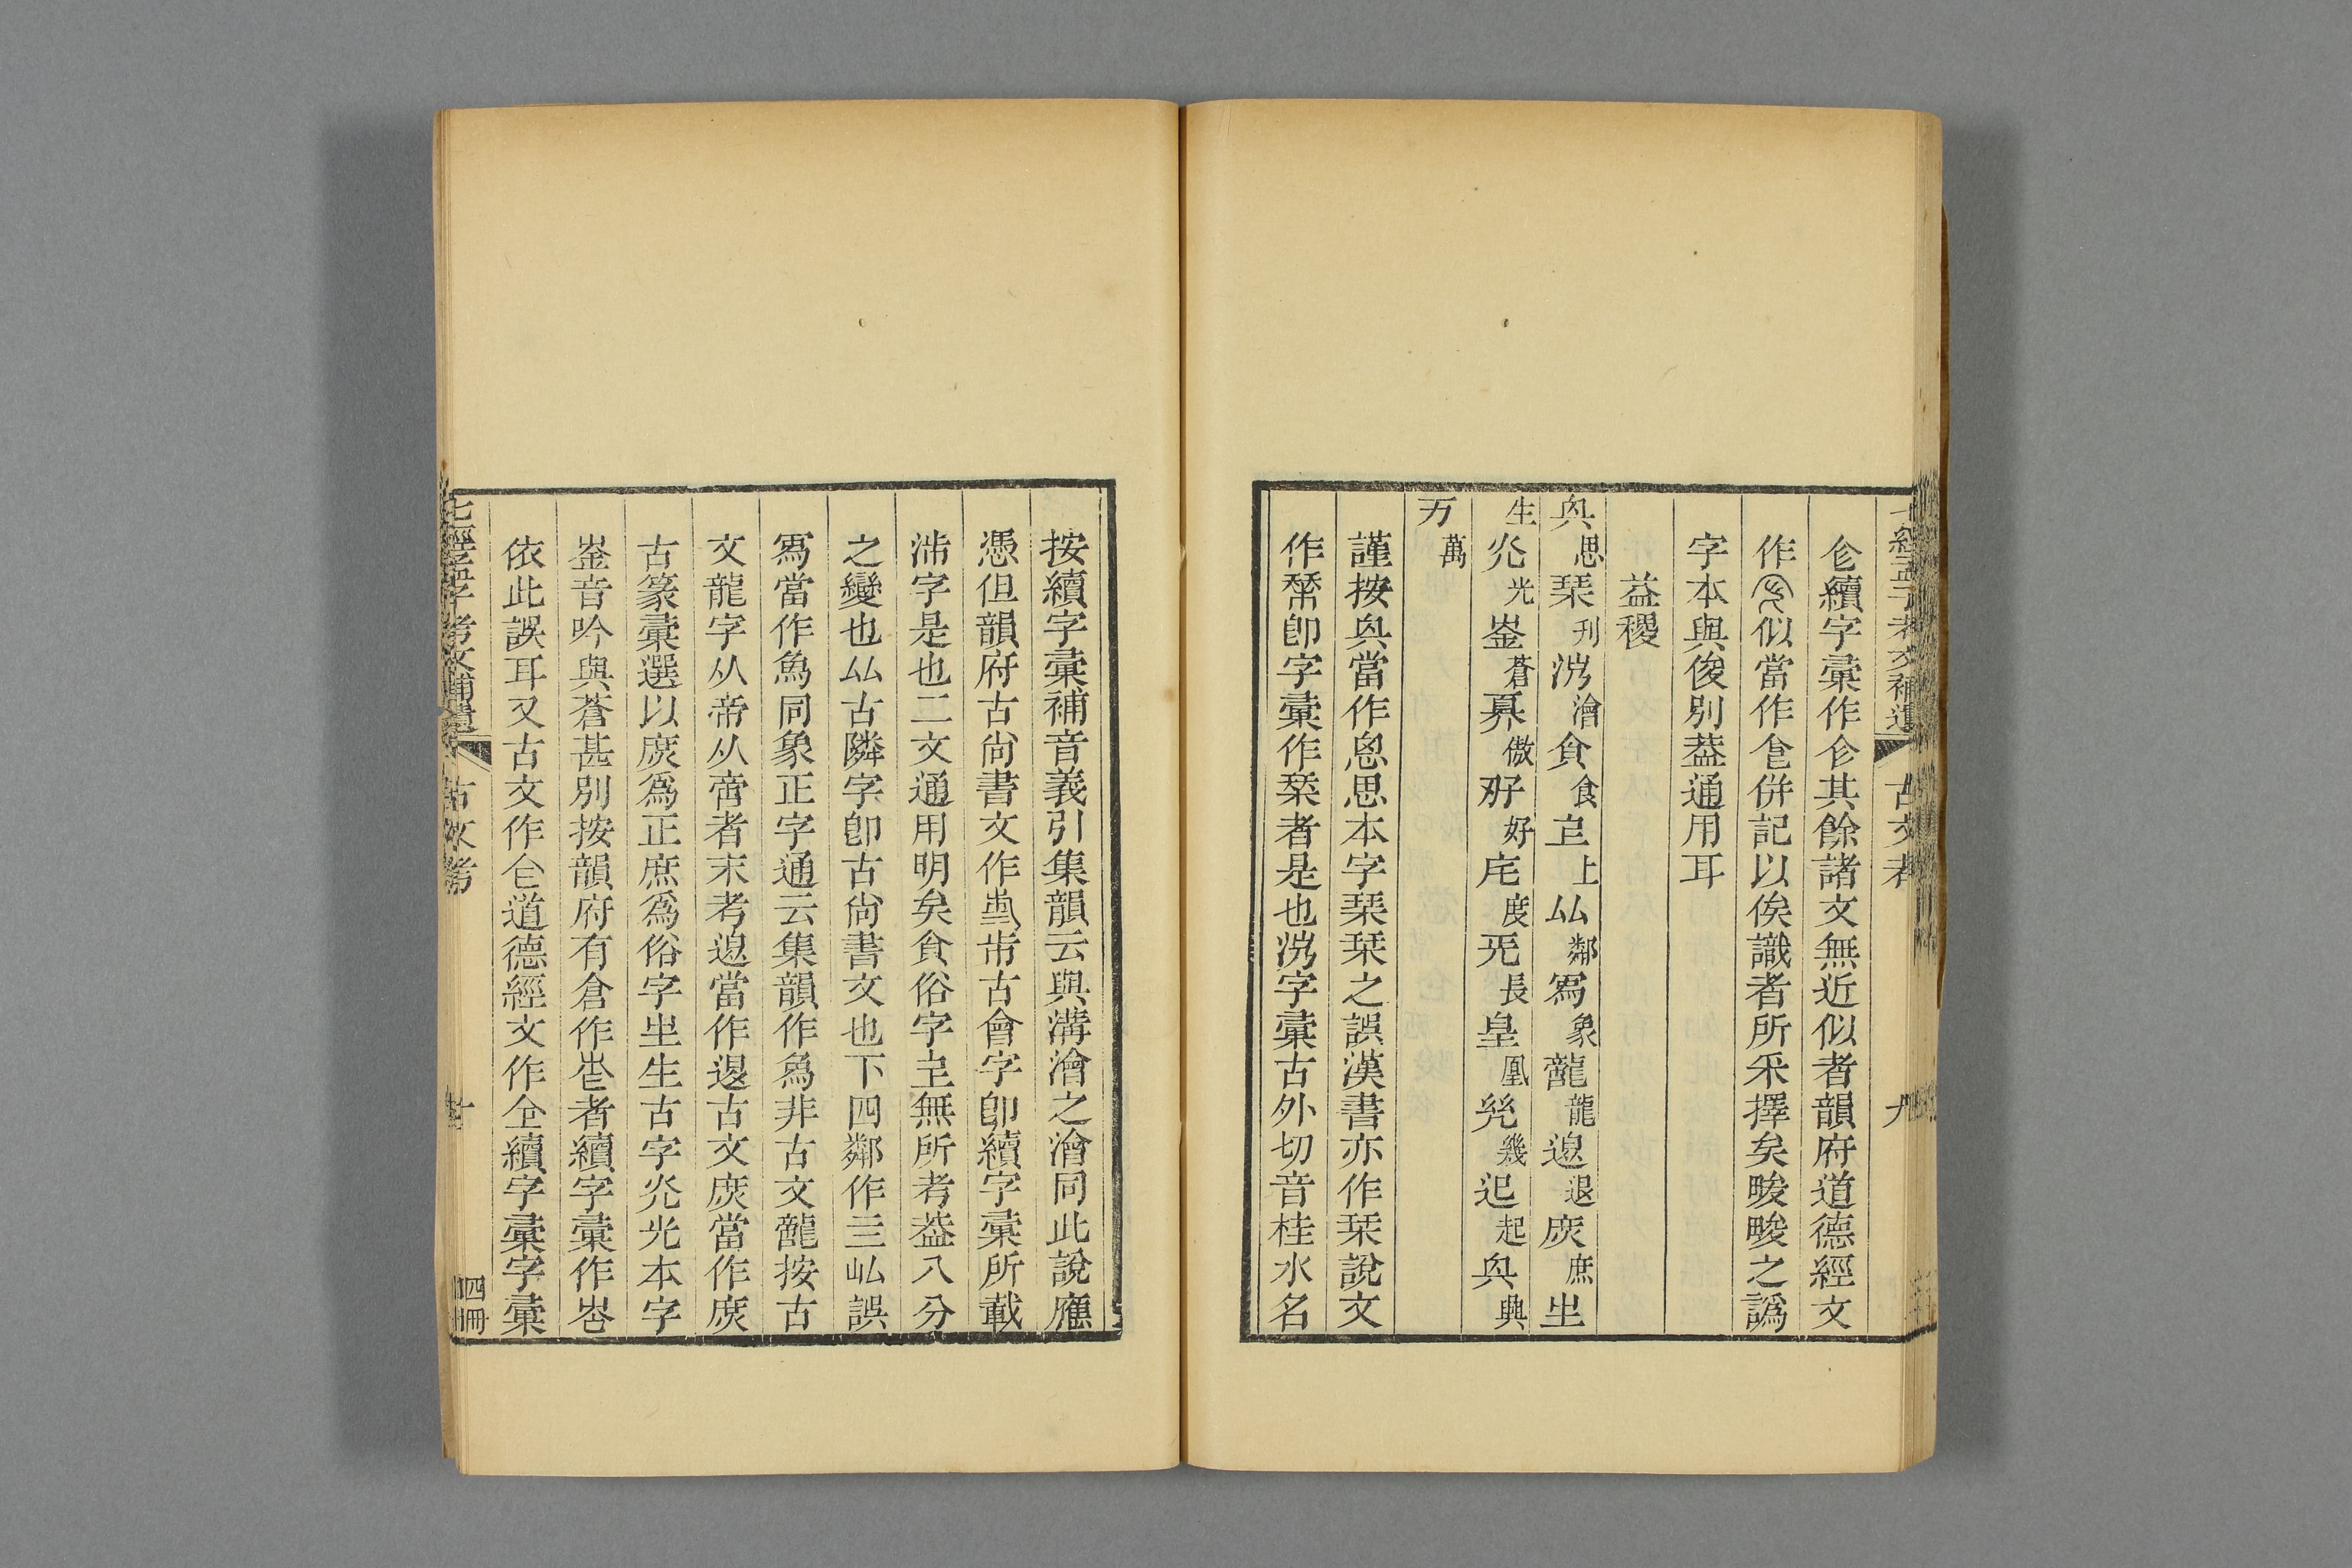 七經孟子考文補遺 古文考 九
仺續字彙作仺其餘諸文無近似者韻府道德經文
作 似當作 併記以俟識者所采擇矣畯畯之譌
字本與俊別葢通用耳
益稷
思 栞刋 澮 𠊊食 上 厸鄰 象 龍 𨓤退 庶 㞷
生 灮光 蒼 奡傲 𡥆好 㡯度 兂長 皇凰 幾 起 興
万萬
謹按 當作恖思本字栞栞之誤漢書亦作栞說文
作 卽字彙作 者是也 字彙古外切音桂水名
按續字彙補音義引集韻云與溝澮之澮同此說應
憑但韻府古尙書文作 㞢古會字卽續字彙所載
字是也二文通用明矣 俗字 無所考葢八分
之變也厸古隣字卽古尙書文也下四鄰作亖厸誤
爲當作 同象正字通云集韻作爲非古文 按古
文龍字从帝从啻者未考𨓤當作 古文 當作
古篆彙選以 爲正庶爲俗字㞷生古字灮光本字
崟音吟與蒼甚別按韻府有倉作 者續字彙作
依此誤耳又古文作仺道德經文作仝續字彙字彙
七經孟子考文補遺 古文考 十 四冊